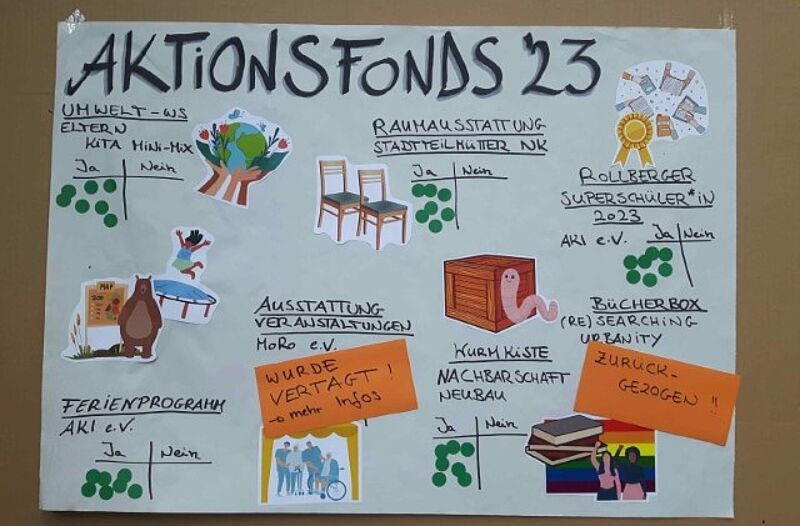 AKTIONSFONDS '23
UMWELT-WS
ELTERN
KITA MINI-MIX
Ja Nein
RAUMAUSSTATTUNG
STADTTEILMÜTTER NK
Ja Nein
ROLLBERGER
SUPERSCHÜLER*IN
2023
AKI e.V. Ja Nein
MAP
ZOO
FERIENPROGRAMM
AKI e.V.
Ja Nein
AUSSTATTUNG
VERANSTALTUNGEN
MoRo e.V.
WURDE
VERTAGT!
→ mehr Infos
WURMKISTE
NACHBARSCHAFT
NEUBAU
Ja Nein
BÜCHERBOX
(RE)SEARCHING
URBANITY
ZURÜCK-
GEZOGEN!!